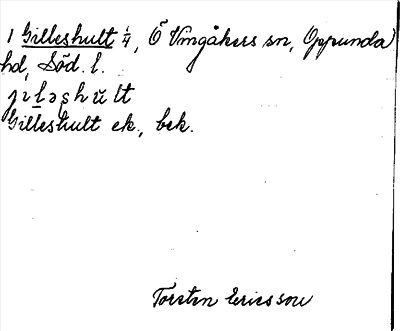 1 Gilleshult 1/4, Ö Vingåkers sn, Oppunda
hd, Söd. l.
Gilleshult ek., bek.
Torsten Ericsson